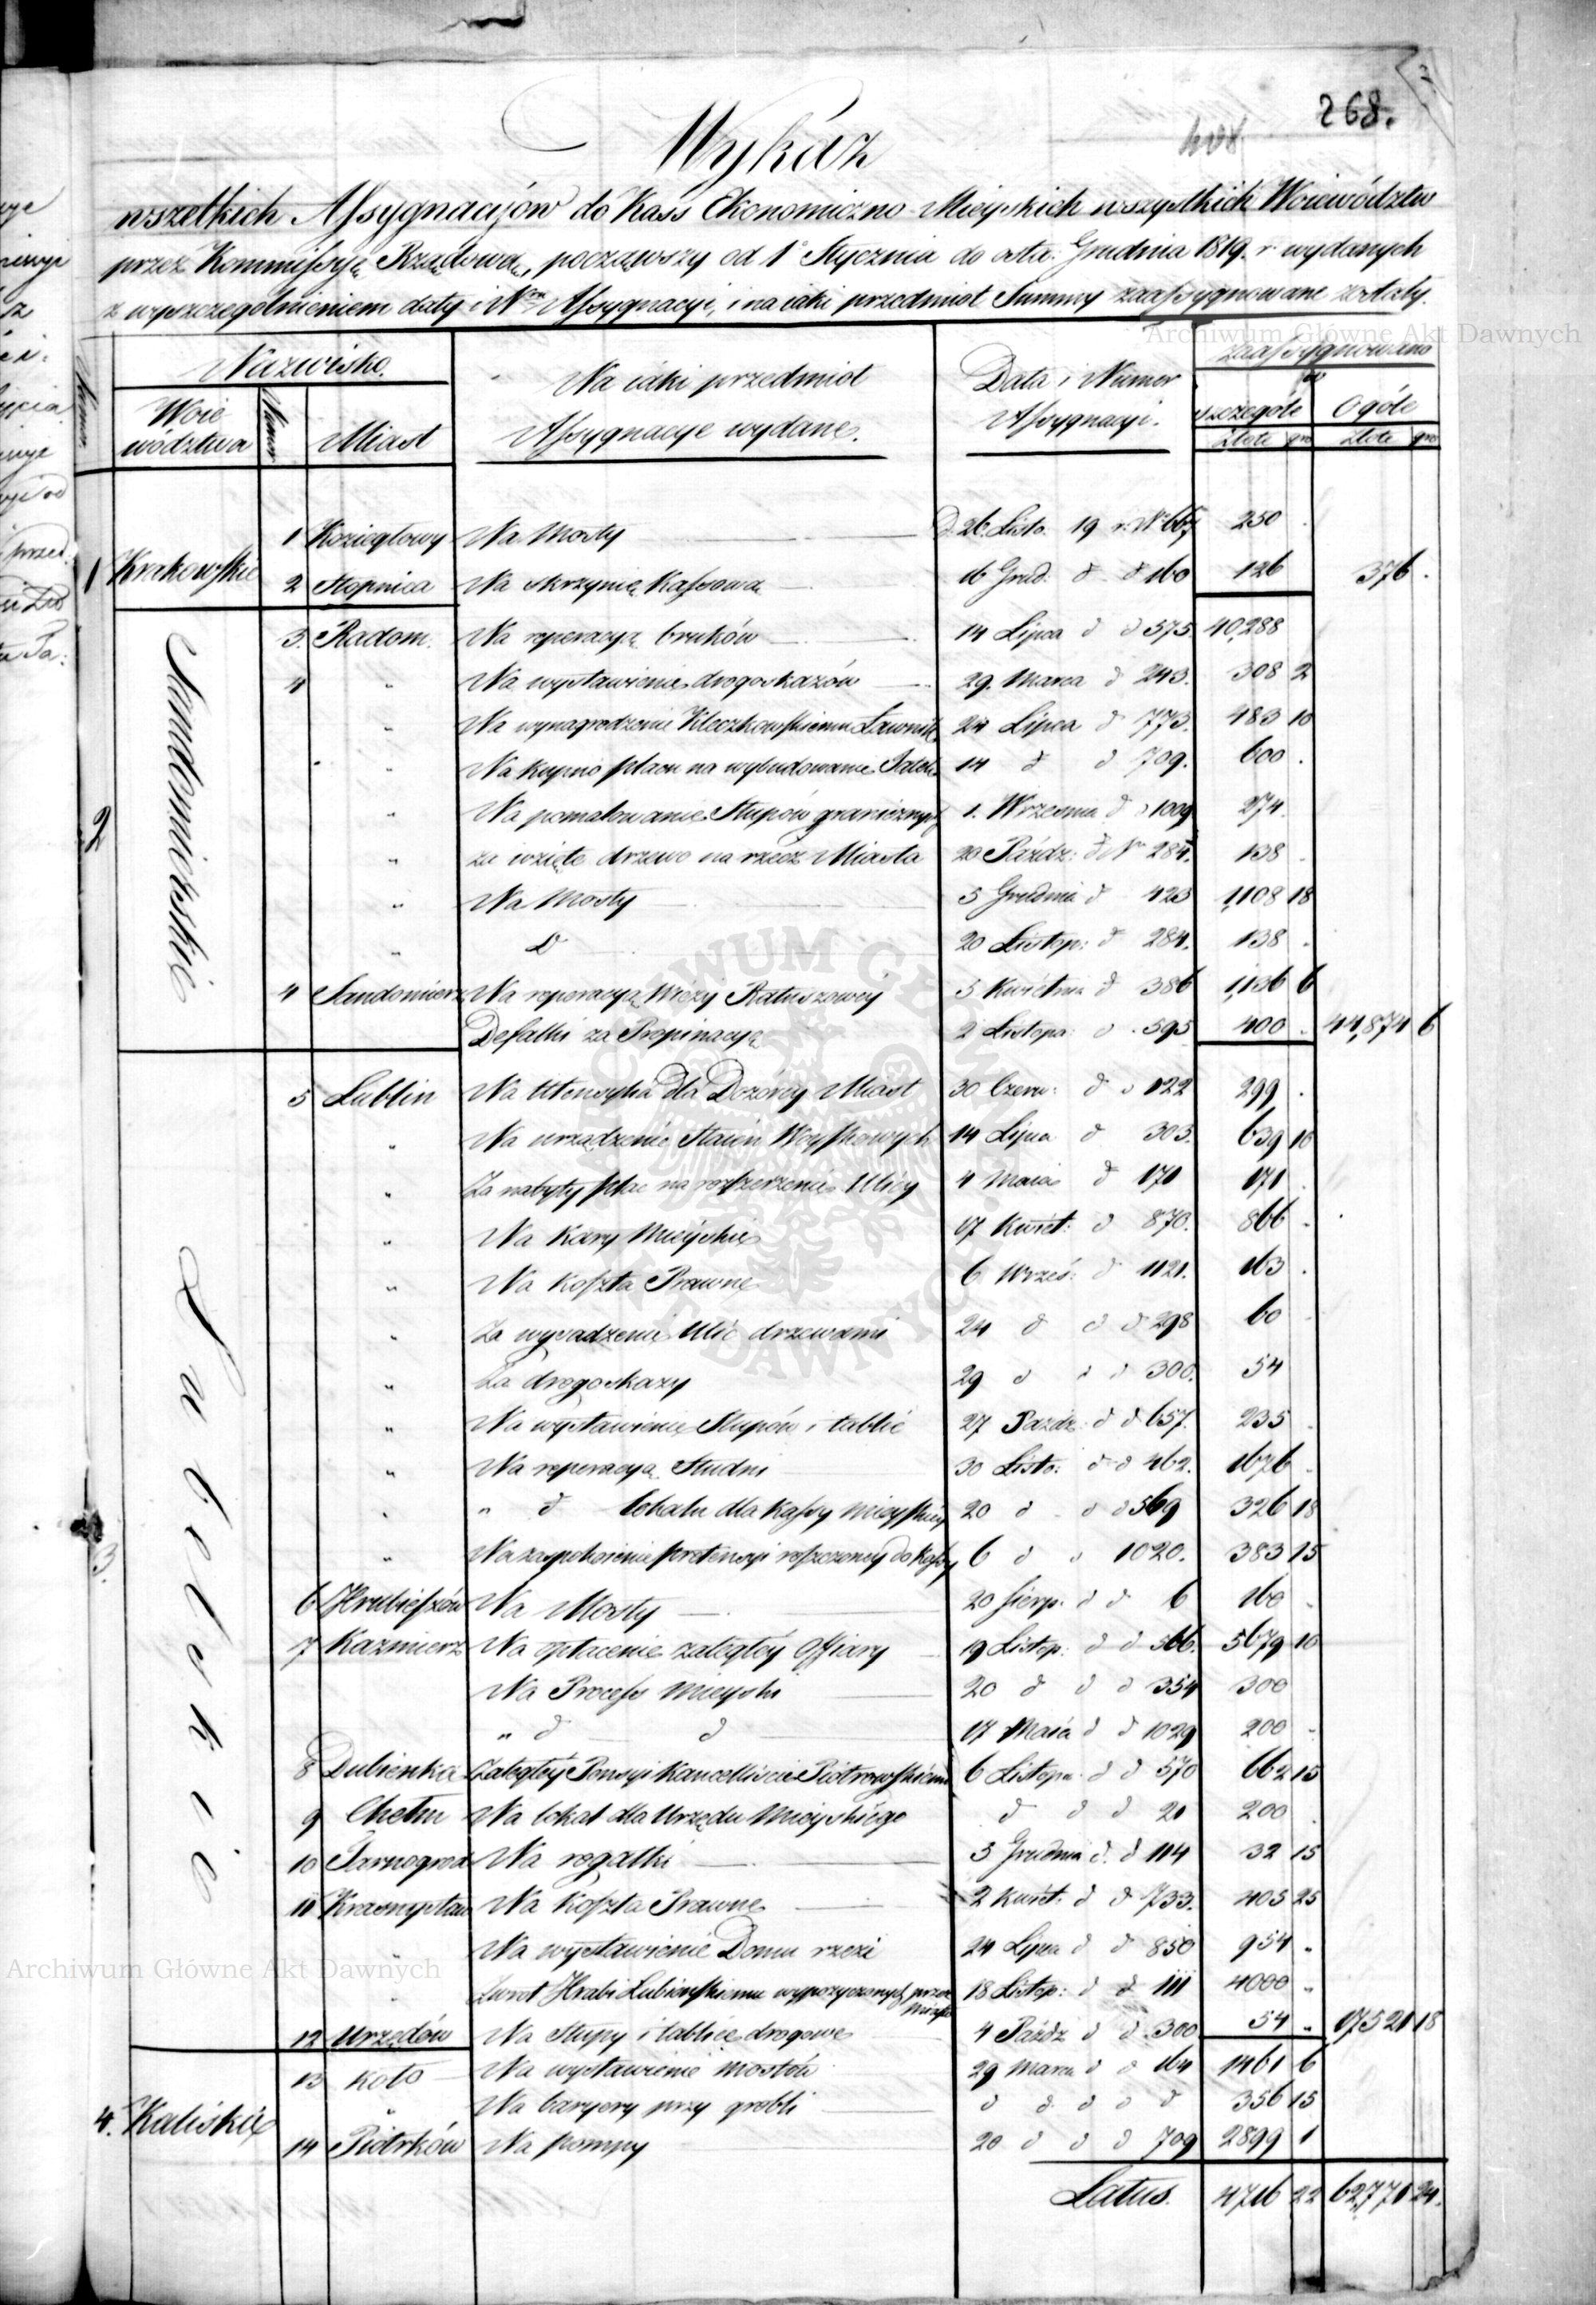 268.
408
Wykáz
wszelkich Assygnacyiów do Kass Ekonomiczno Mieyskich wszystkich Woiewództw
przez Kommissyią Rządową, począwszy od 1º Stycznia do osta: Grudnia 1819. r. wydanych
z wyszczegolnieniem daty i Nru Assygnacyi, i na iaki przedmiot Summy zaassygnowane zostały.
Archiwum Główne Akt Dawnych
Numer Nazwisko. Na iaki przedmiot Assygnacye wydane. Data i Numer Assygnacyi. zaassygnowano
Woiewództwa Numer Miast szczególe Ogóle
złote gro złote gro
1 Koziegłowy Na Mosty D. 26. Listo. 19 r. Nº 667 250
1 Krakowskie 2 Stopnica Na skrzynię Kassową 16 Grud. d d 160 126 376.
2 Sandomirskie 3. Radom. Na reperacyą bruków 14 Lipca d d 575 40,288
4 " Na wystawienie drogoskazów 29. Marca d 243. 308 2
" Na wynagrodzenie Kleczkowskiemu Ławnik. 24 Lipca d 773. 483 10
" Na kupno placu na wybudowanie Jatek 14 d d 709. 600
" Na pomalowanie Słupów granicznych 1. Września d d 1009 274
" za wzięte drzewo na rzecz Miasta 20 Paźdz: d Nr 284. 138
" Na Mosty 5 Grudnia d 423 1,108 18
" D 20 Listop: d 284. 138
4 Sandomierz Na reperacyą Wieży Ratuszowey 5 Kwietnia d 386 1,136 6
Defalki za Propinacyą 2 Listopa: d 595 400 44,874 6
5 Lublin Na Utensylia dla Dozórcy Miast 30 Czerw: d d 122 299
" Na urządzenie Staień Woyskowych 14 Lipca d 303. 639 10
" Za nabyty plac na rozszerzenie Ulicy 4 Maia d 171 171
" Na Kary Mieyskie 17 Kwiet: d 870. 866
" Na Koszta Prawne 6 Wrześ: d 1121. 163
" Za wysadzenie Ulic drzewami 24 d d d 298 60
" Za drogoskazy 29 d d d 300. 54
" Na wystawienie Słupów i tablic 27 Paźdz: d d 657. 235
" Na reperacyą Studni 30 Listo: d d 462. 1676
" " d lokalu dla Kassy Mieyskiey 20 d d d 569 326 18
3. Lubelskie " Na zaspokoienie pretensyi roszczoney do Kassy 6 d d 1020. 383 15
6 Hrubieszów Na Mosty 20 Sierp: d d 6 160
7 Kazmierz Na opłacenie zaległey Offiary 19 Listop: d d 566. 5679 10
Na Process Mieyski 20 d d d 354 300
" d d 17 Maia d d 1029 200
8 Dubienka Zaległey Pensyi Kancelliście Piotrowskiemu 6 Listopa: d d 570 662 15
9 Chełm Na lokal dla Urzędu Mieyskiego d d d 21 200
10 Tarnogrod Na rogatki 3 Grudnia d. d 114 32 15
11 Krasnystaw Na Koszta Prawne 2 Kwiet: d d 733. 405 25
" Na wystawienie Domu rzezi 24 Lipca d d 850 954 "
" Zwrot Hrabi Łubieńskiemu wypożyczonych przez Miasto 18 Listop: d d 111 4000 "
Archiwum Główne Akt Dawnych
12 Urzędów Na Słupy i tablice drogowe 4 Paźdz d d 300 54 " 17521 18
13 Koło Na wystawienie mostów 29 Marca d d 164 1461 6
4. Kaliskie " Na baryery przy grobli d d d d d 356 15
14 Piotrków Na pompy 20 d d d 709 2899 1
Latus. 4716 22 62,771 24.